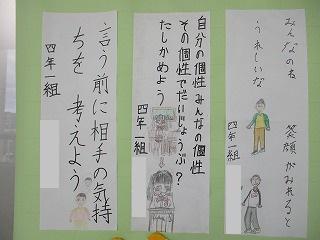 みんなのね 笑顔がみれると
うれしいな
四年一組
自分の個性みんなの個性
その個性でだいじょうぶ?
たしかめよう
四年一組
言う前に相手の気持
ちを 考えよう
四年一組